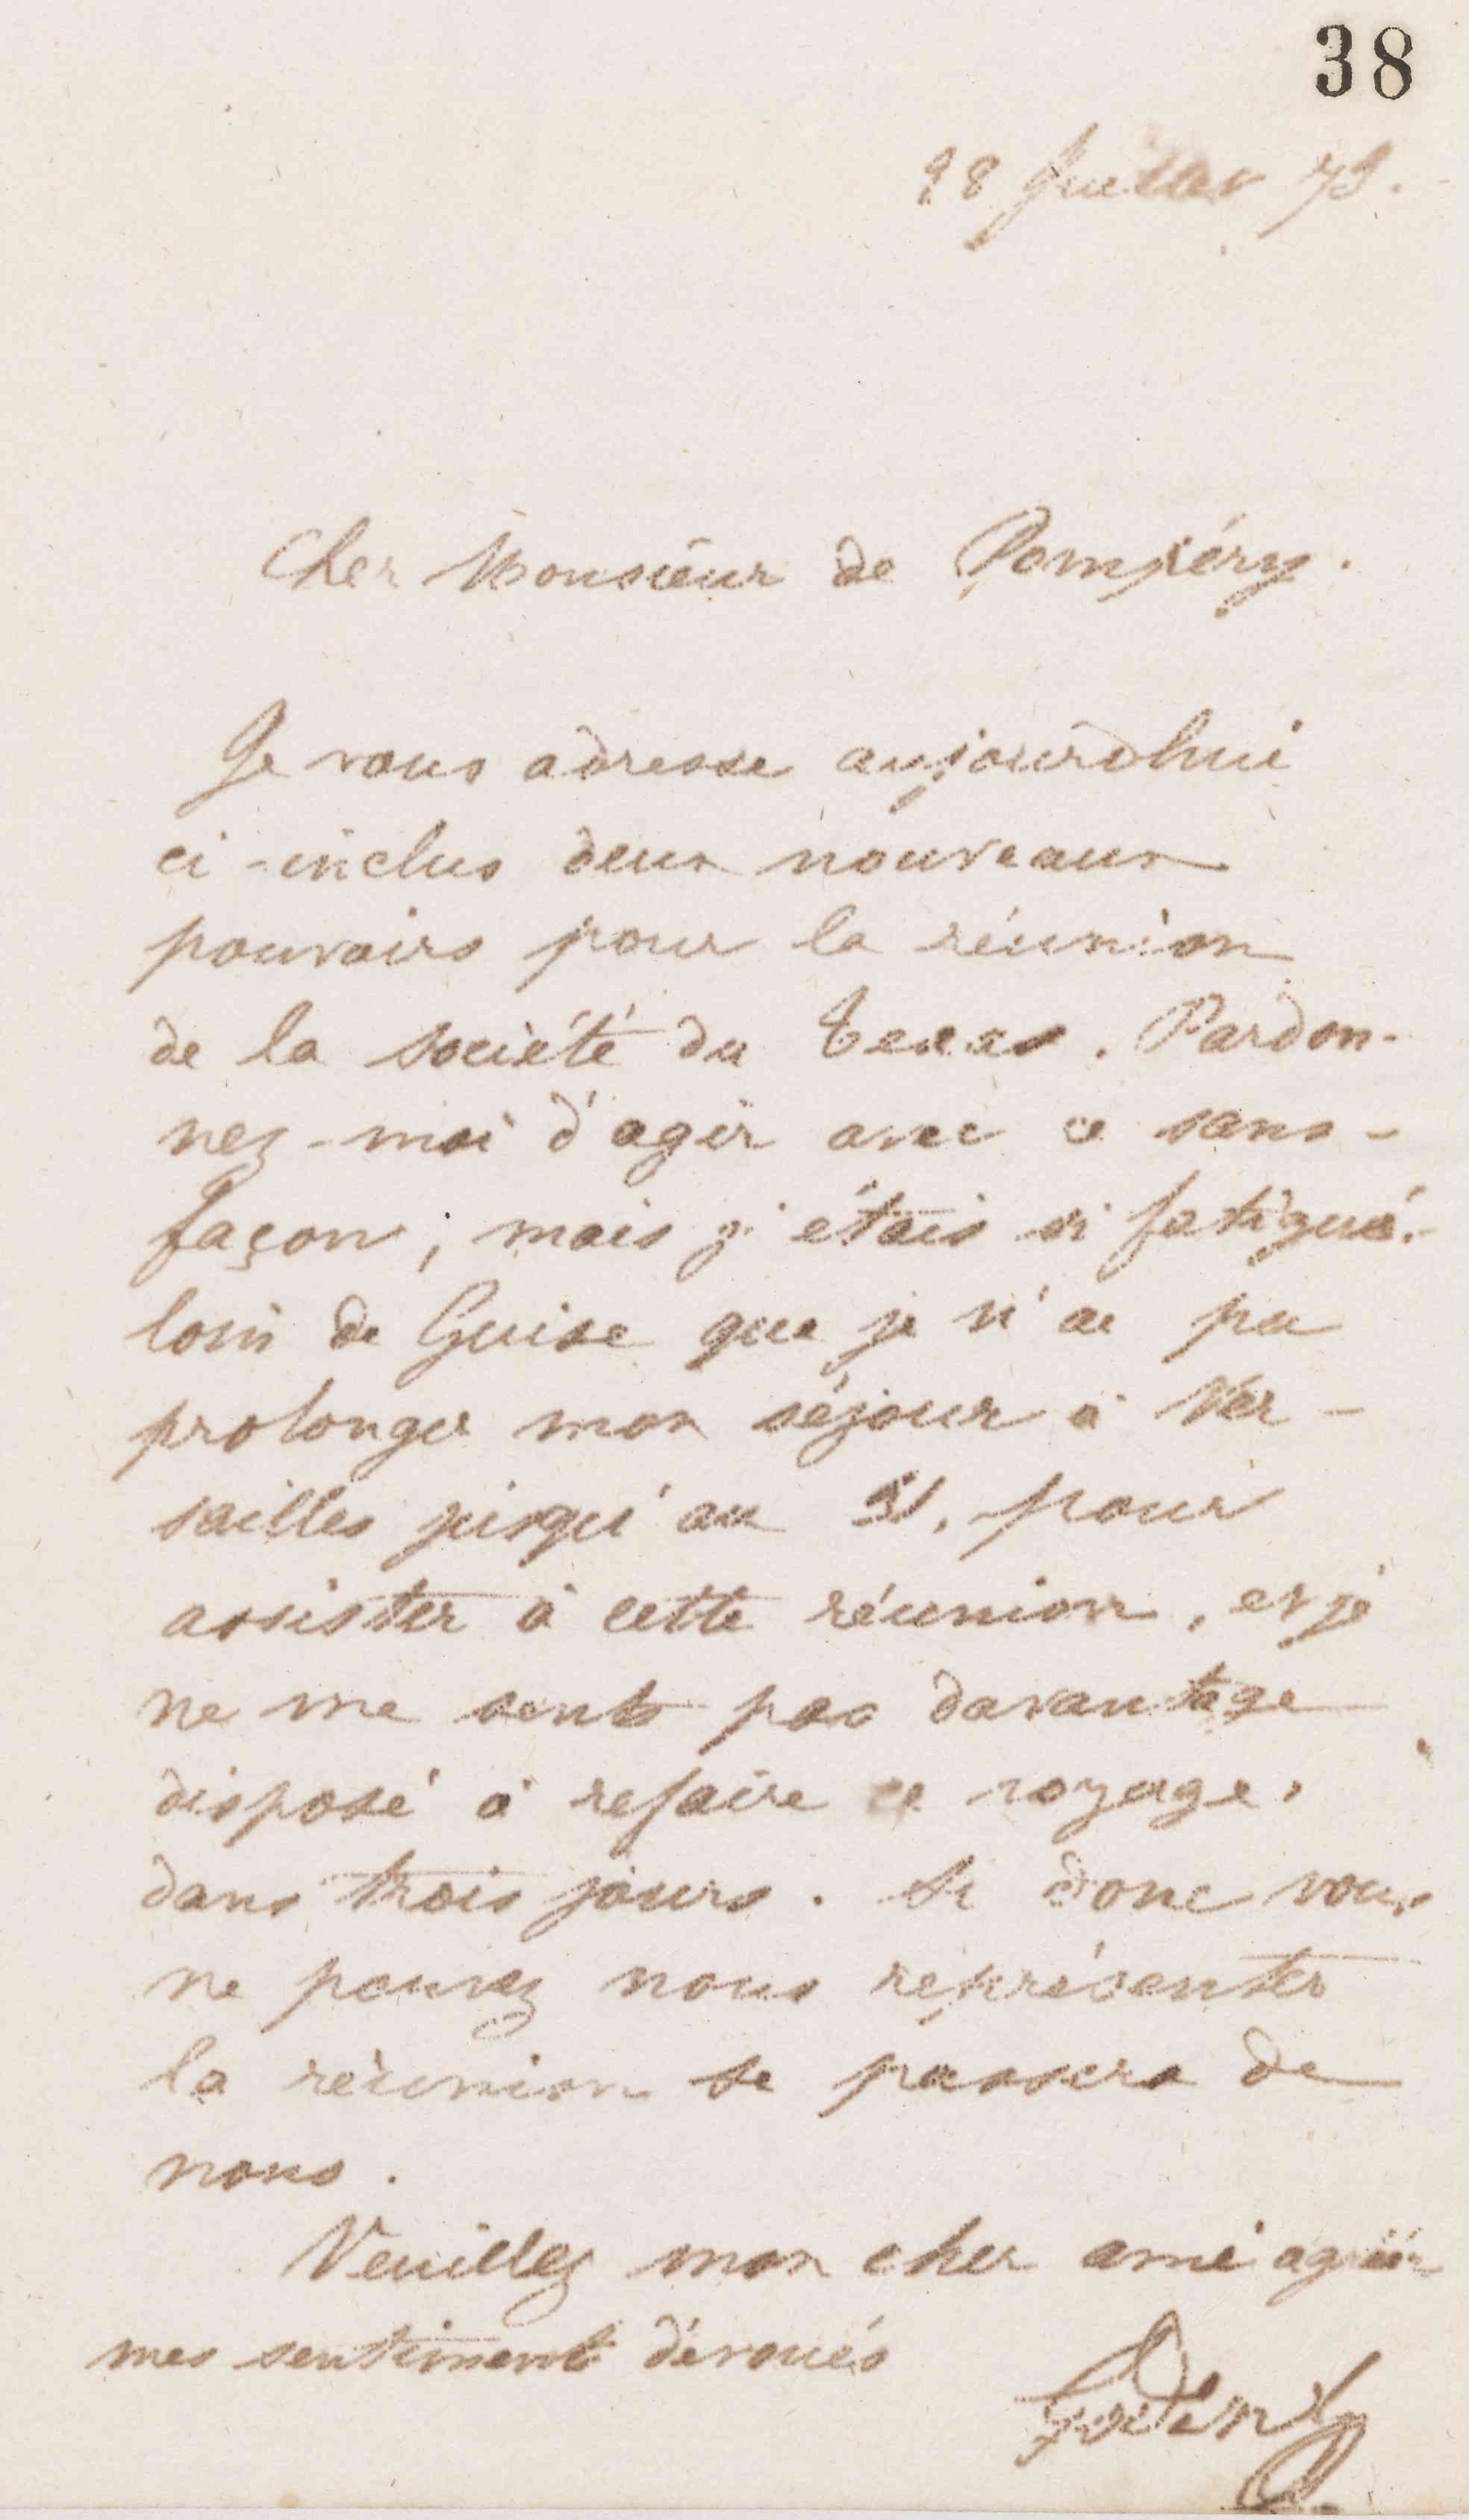 38
28 Juillet 75.
Cher Monsieur de Pompéry.
Je vous adresse aujourdhui
ci-inclus deux nouveaux
pouvoirs pour la réunion
de la société du Texas. Pardon-
nez-moi d'agir avec ce sans-
façon, mais j'étais si fatigué
loin de Guise que je n'ai pu
prolonger mon séjour à Ver-
sailles jusqu'au 31, pour
assister à cette réunion, et je
ne me sents pas davantage
disposé à refaire ce voyage
dans trois jours. Si donc vous
ne pouvez nous représenter
la réunion se passera de
nous.
Veuillez mon cher ami agréer
mes sentiments dévoués
Godin